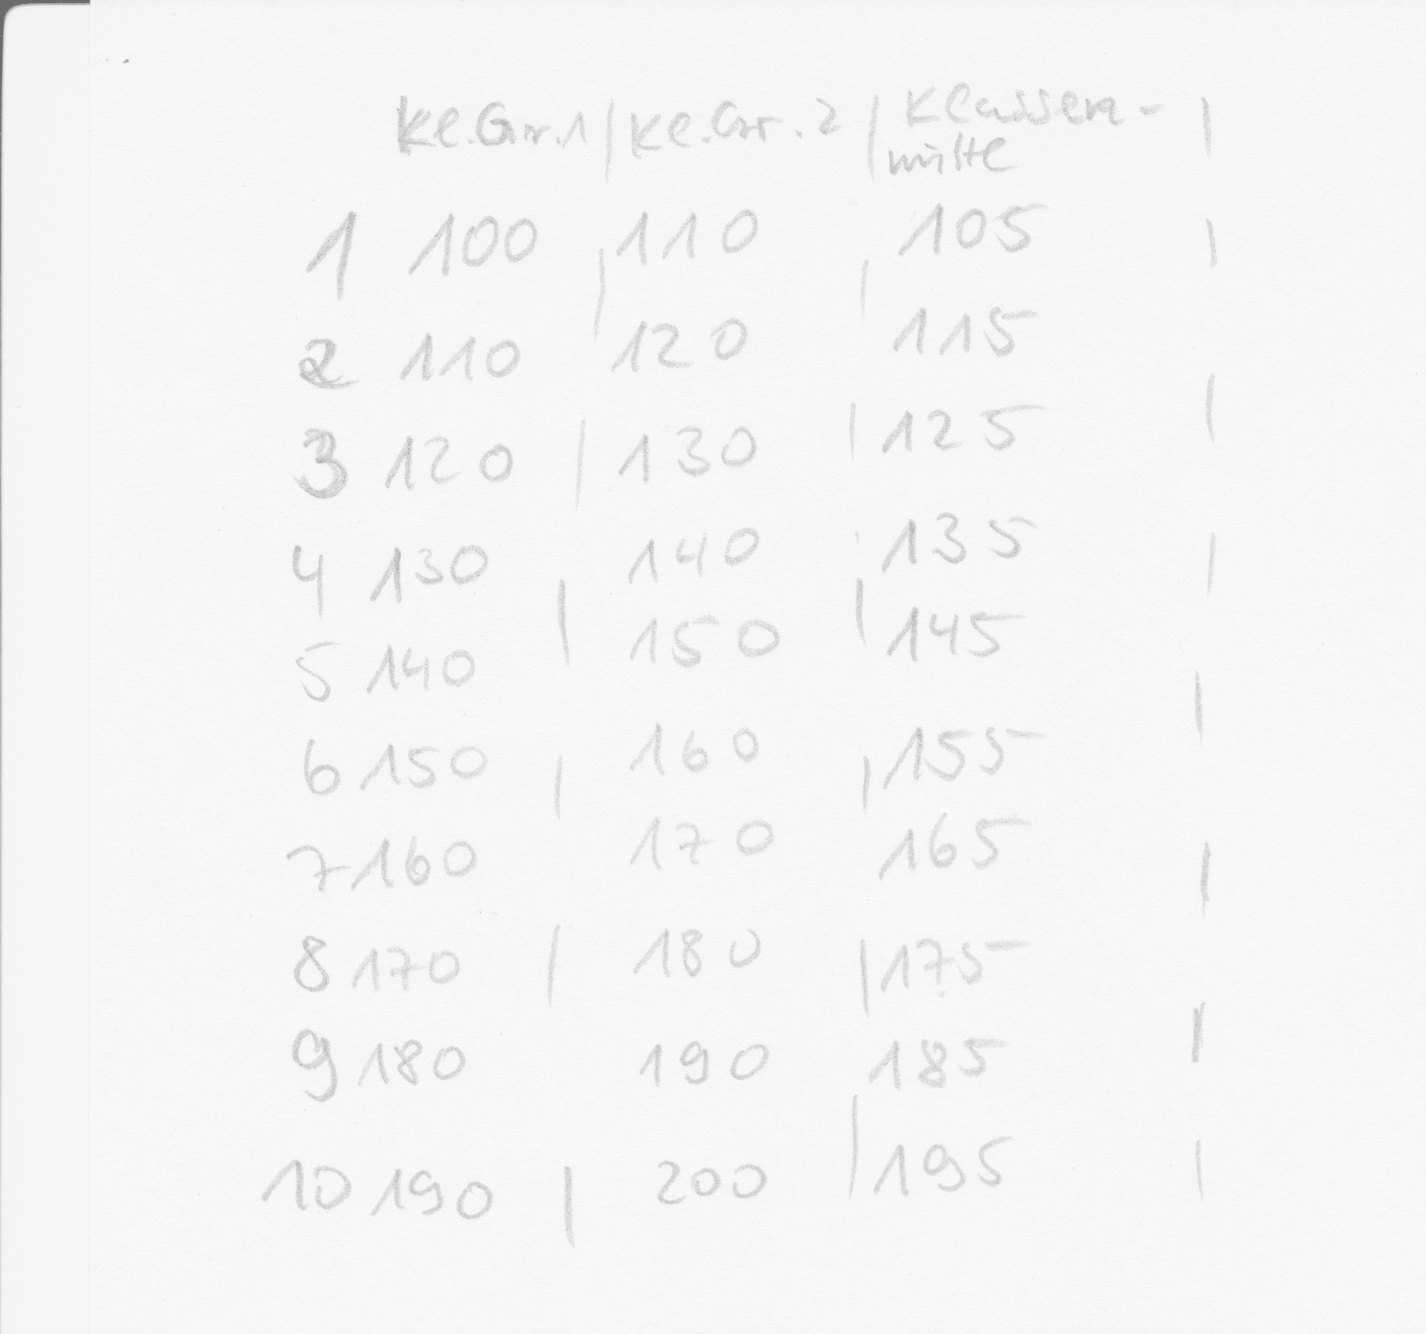 Kl.Gr.1 | Kl.Gr.2 | Klassen-
mitte
1 100 | 110 | 105
2 110 120 115
3 120 | 130 | 125
4 130 140 135
5 140 | 150 | 145
6 150 | 160 | 155
7 160 170 165
8 170 | 180 | 175
9 180 190 185
10 190 | 200 | 195